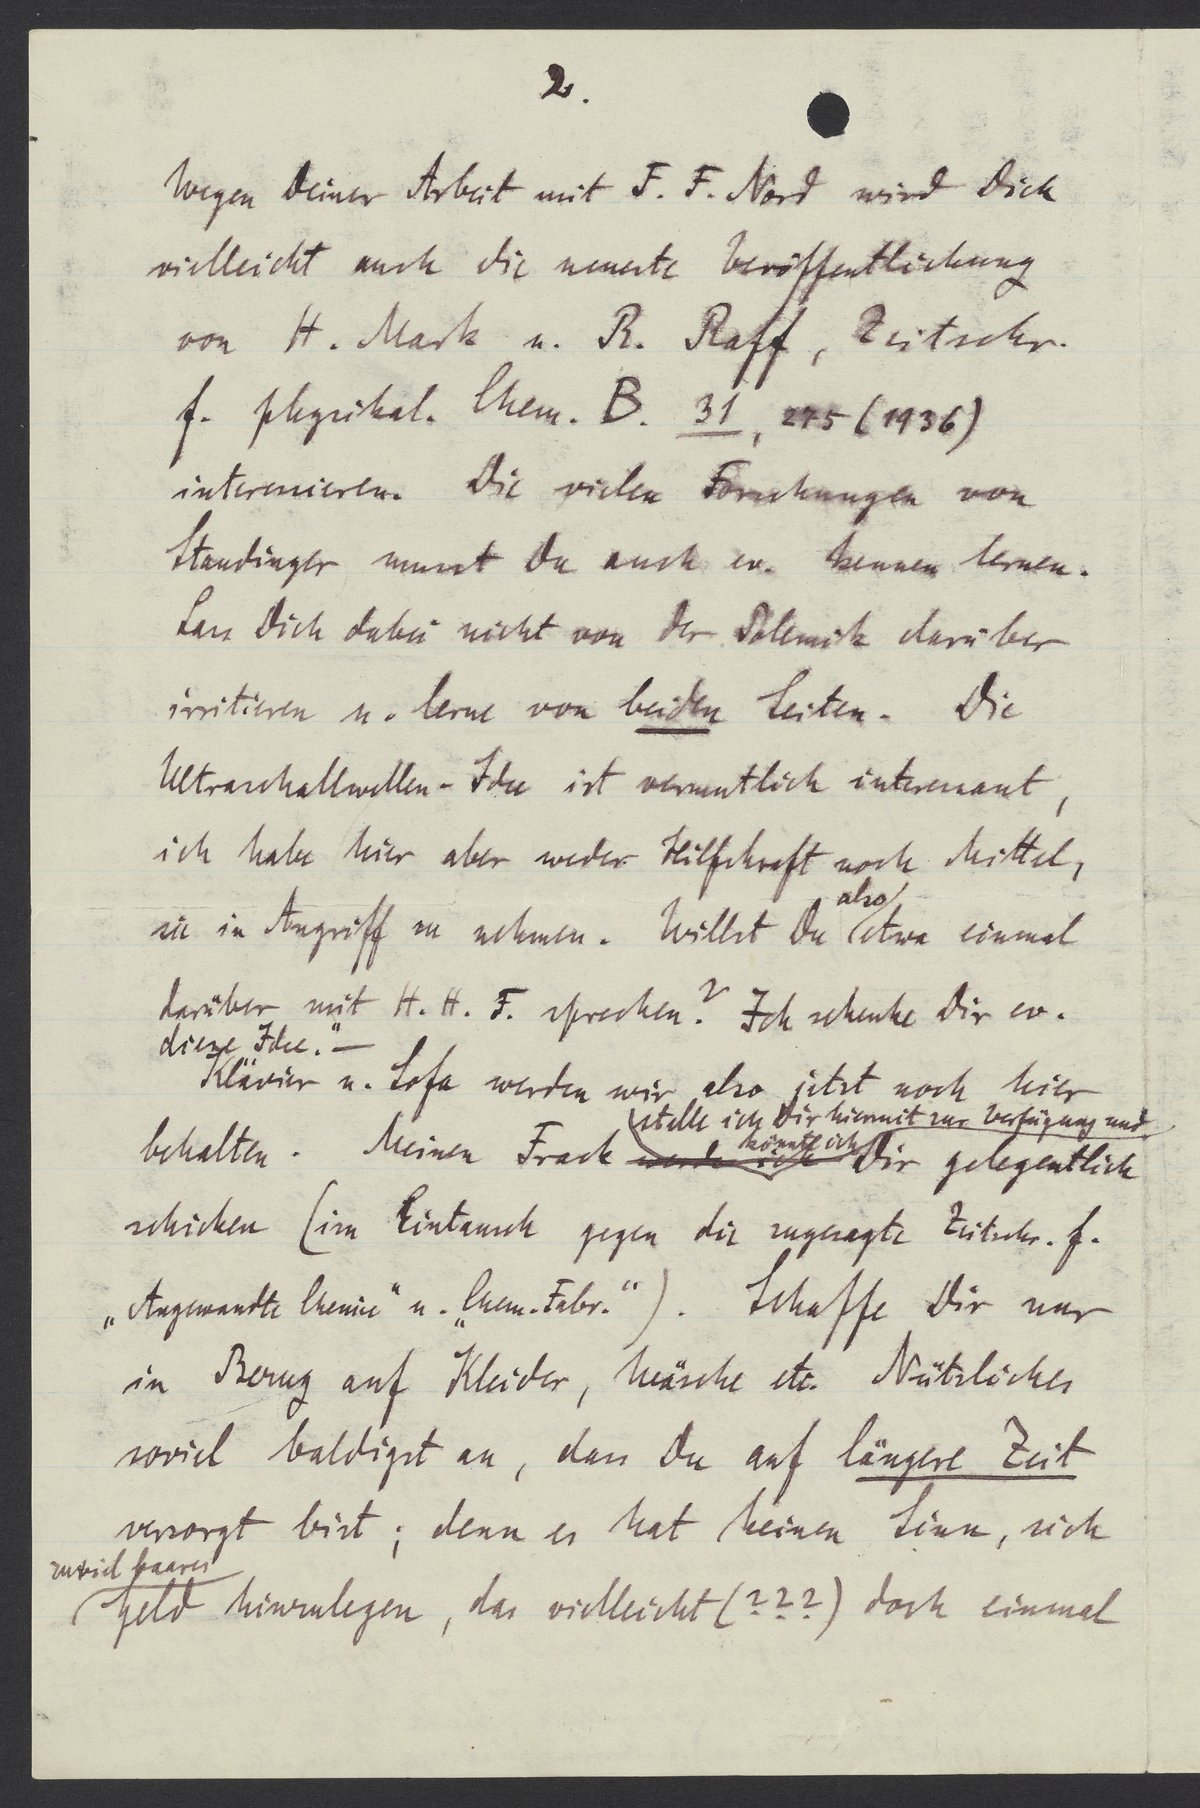 2.
Wegen Deiner Arbeit mit F. F. Nord wird Dich
vielleicht auch die neueste Veröffentlichung
von H. Mark u. R. Raff, Zeitschr.
f. physikal. Chem. B. 31, 275 (1936)
interessieren. Die vielen Forschungen von
Staudinger musst Du auch ev. kennen lernen.
Lass Dich dabei nicht von der Polemik darüber
irritieren u. lerne von beiden Seiten. Die
Ultraschallwellen-Idee ist vermutlich interessant,
ich habe hier aber weder Hilfskraft noch Mittel,
sie in Angriff zu nehmen. Willst Du also etwa einmal
darüber mit H. H. F. sprechen? Ich schenke Dir ev.
diese "Idee." —
Klavier u. Sofa werden wir also jetzt noch hier
behalten. Meinen Frack stelle ich Dir hiermit zur Verfügung und
werde ich könnte ich Dir gelegentlich
schicken (im Eintausch gegen die zugesagte Zeitschr. f.
„Angewandte Chemie" u. „Chem. Fabr."). Schaffe Dir nur
in Bezug auf Kleider, Wäsche etc. Nützliches
soviel baldigst an, dass Du auf längere Zeit
versorgt bist; denn es hat keinen Sinn, sich
zuviel baares
Geld hinzulegen, das vielleicht (???) doch einmal